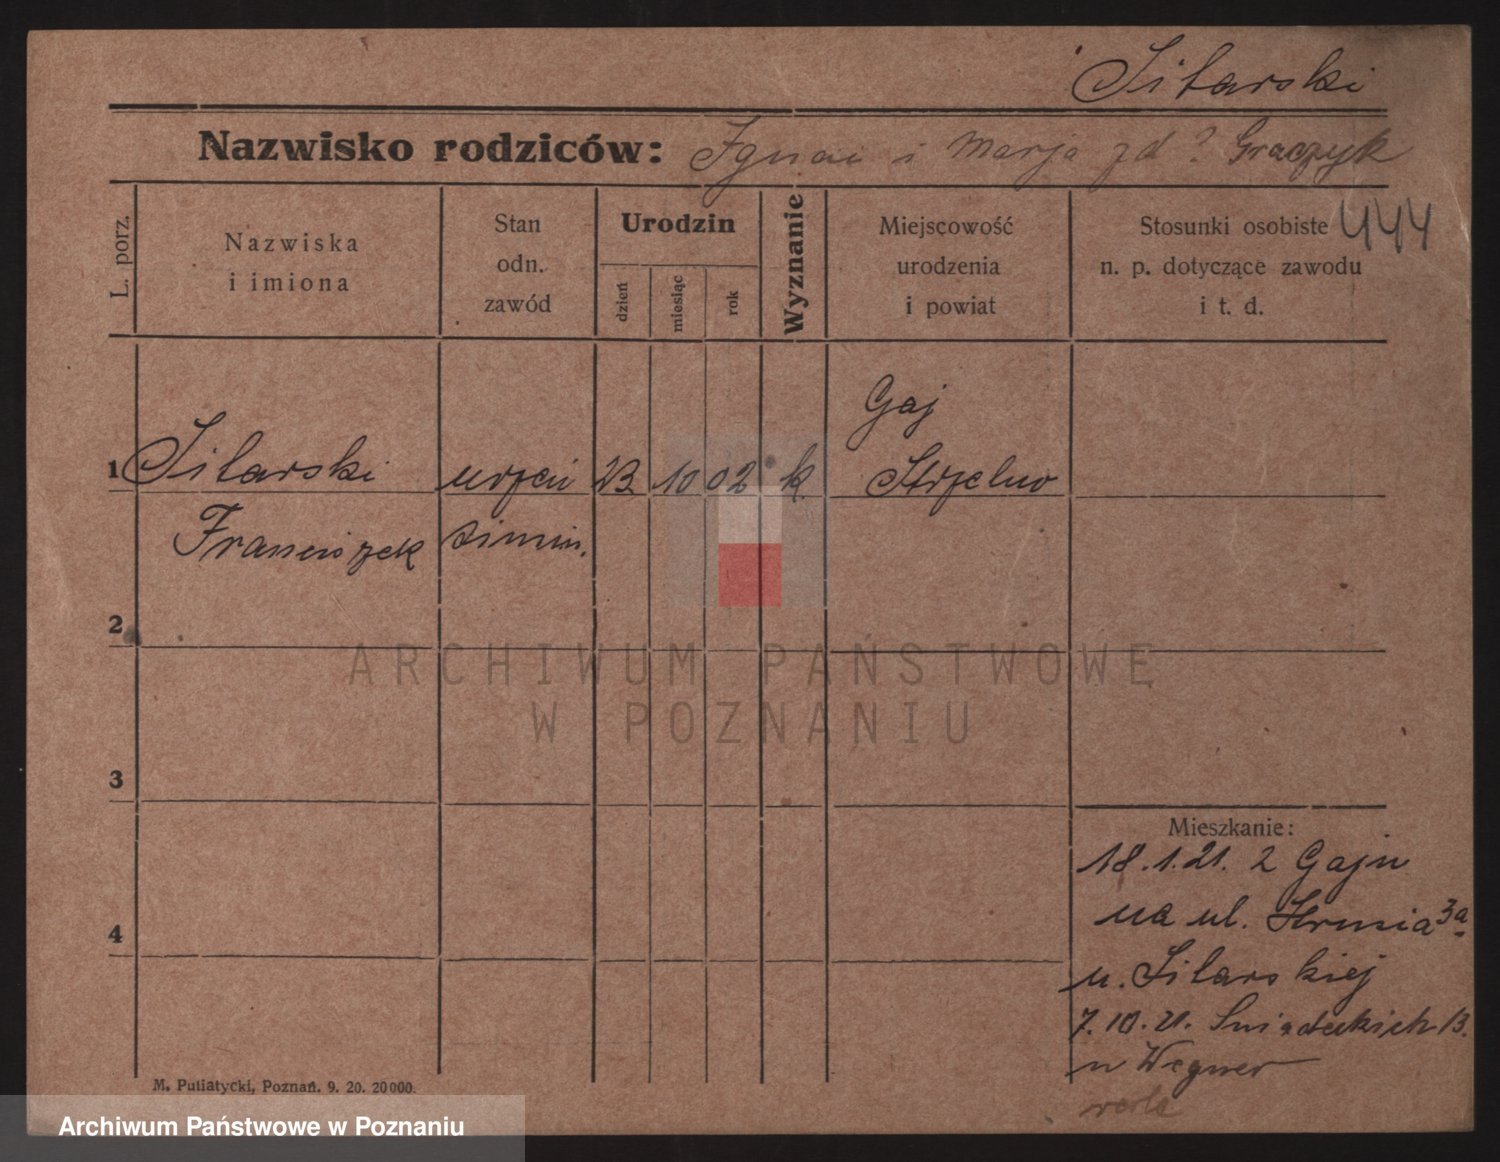 Silarski
Nazwisko rodziców: Ignac i Marja zd? Graczyk
L. porz.
Nazwiska
i imiona
Stan
odn.
zawód
Urodzin
dzień
miesiąc
rok
Wyznanie
Miejscowość
urodzenia
i powiat
Stosunki osobiste
n. p. dotyczące zawodu
i t. d.
444
Gaj
1 Silarski urzęd 23 10 02 k Strzelno
Franciszek
2
3
4
Mieszkanie:
18.1.21. z Gaju
na ul. 3a
u. Silarskiej
7.10.21. Śniadeckich 13.
u Wegner
M. Putiatycki, Poznań. 9. 20. 20000.
ARCHIWUM PAŃSTWOWE
W POZNANIU
Archiwum Państwowe w Poznaniu